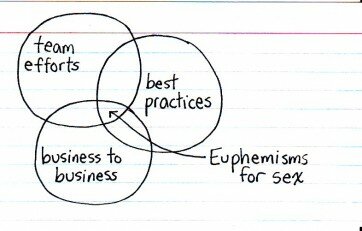 team
efforts
best
practices
business to
business
Euphemisms
for sex